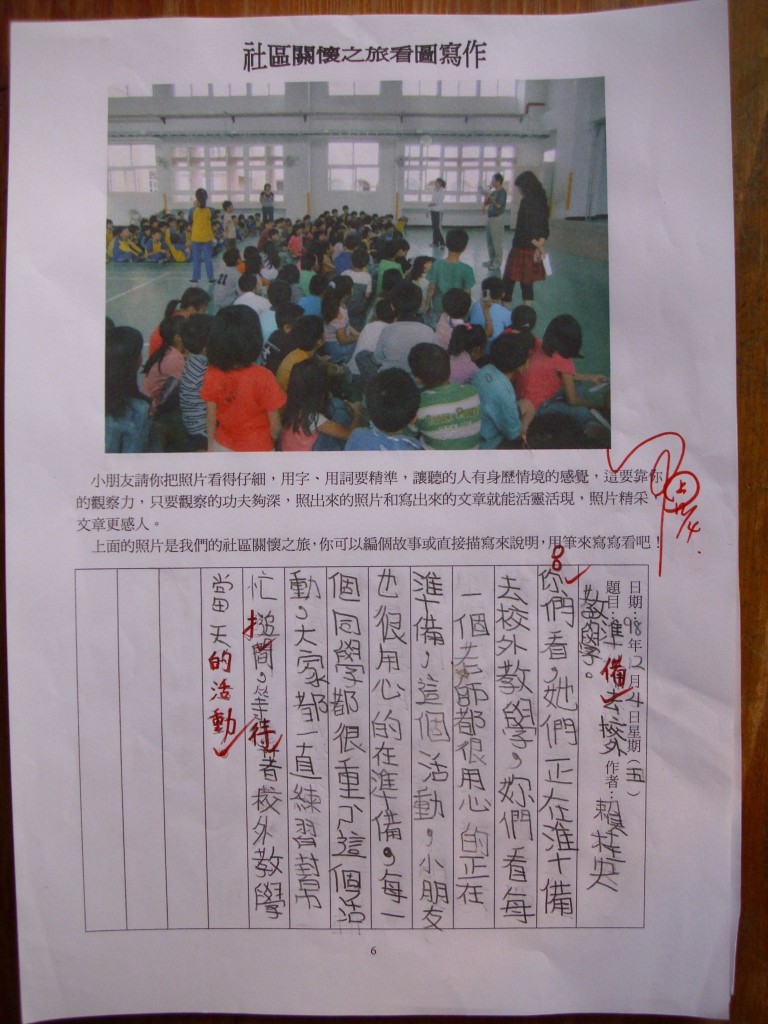 社區關懷之旅看圖寫作
小朋友請你把照片看得仔細，用字、用詞要精準，讓聽的人有身歷情境的感覺，這要靠你
的觀察力，只要觀察的功夫夠深，照出來的照片和寫出來的文章就能活靈活現，照片精采
文章更感人。
上面的照片是我們的社區關懷之旅，你可以編個故事或直接描寫來說明，用筆來寫寫看吧！
日期：98年12月4日星期（五）
題目：準備去校外 作者：賴
教學。
你們看，她們正在準備
去校外教學，妳們看每
一個老師都很用心的正在
準備，這個活動，小朋友
也很用心的在準備，每一
個同學都很重了這個活
動，大家都一直練習
忙間，等待著校外教學
當天的活動
6